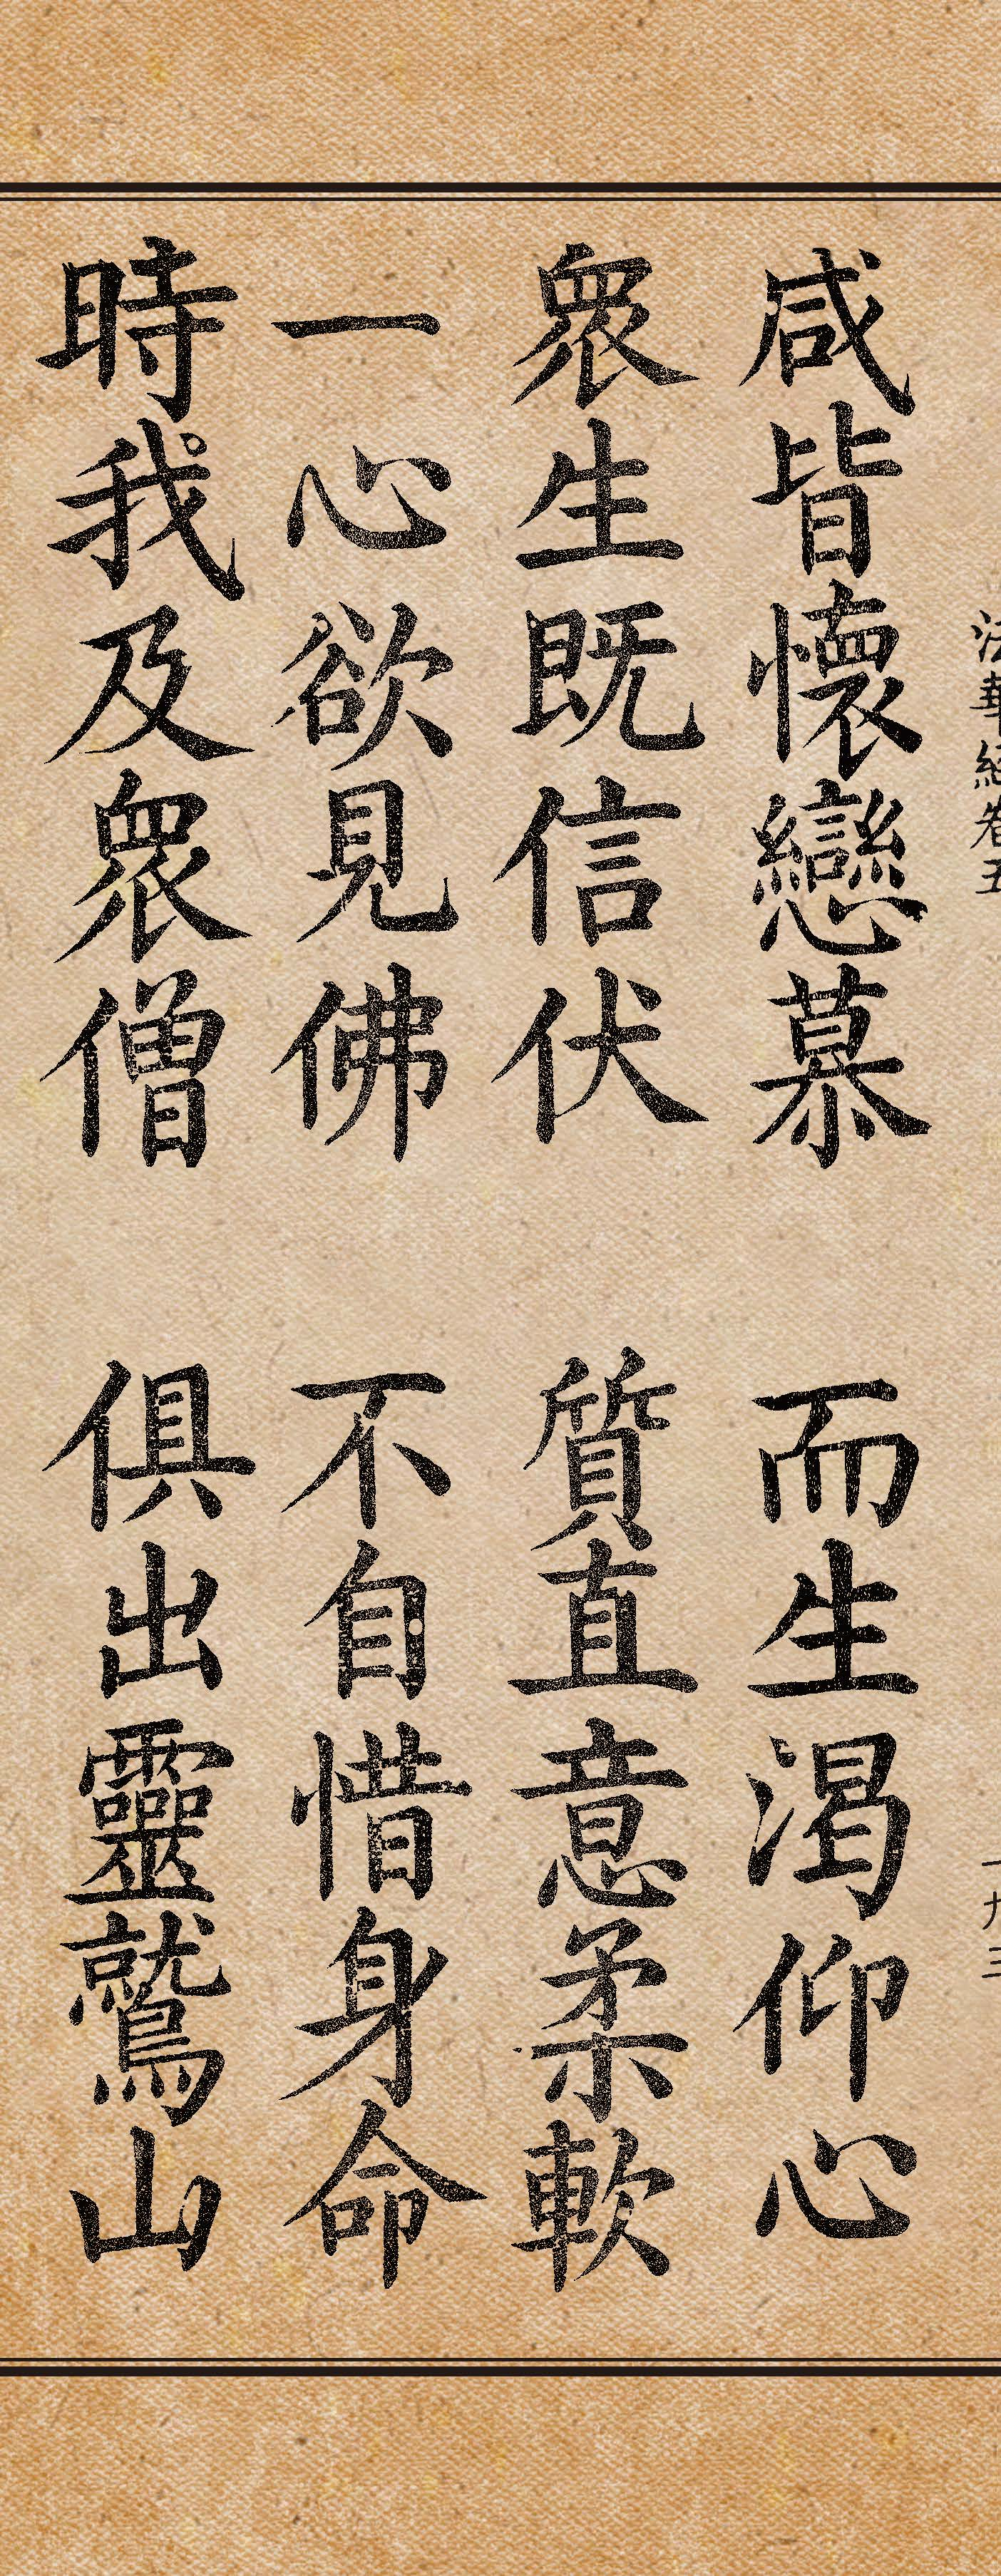 法華經卷五 一九三
咸皆懷戀慕 而生渴仰心
衆生既信伏 質直意柔軟
一心欲見佛 不自惜身命
時我及衆僧 俱出靈鷲山